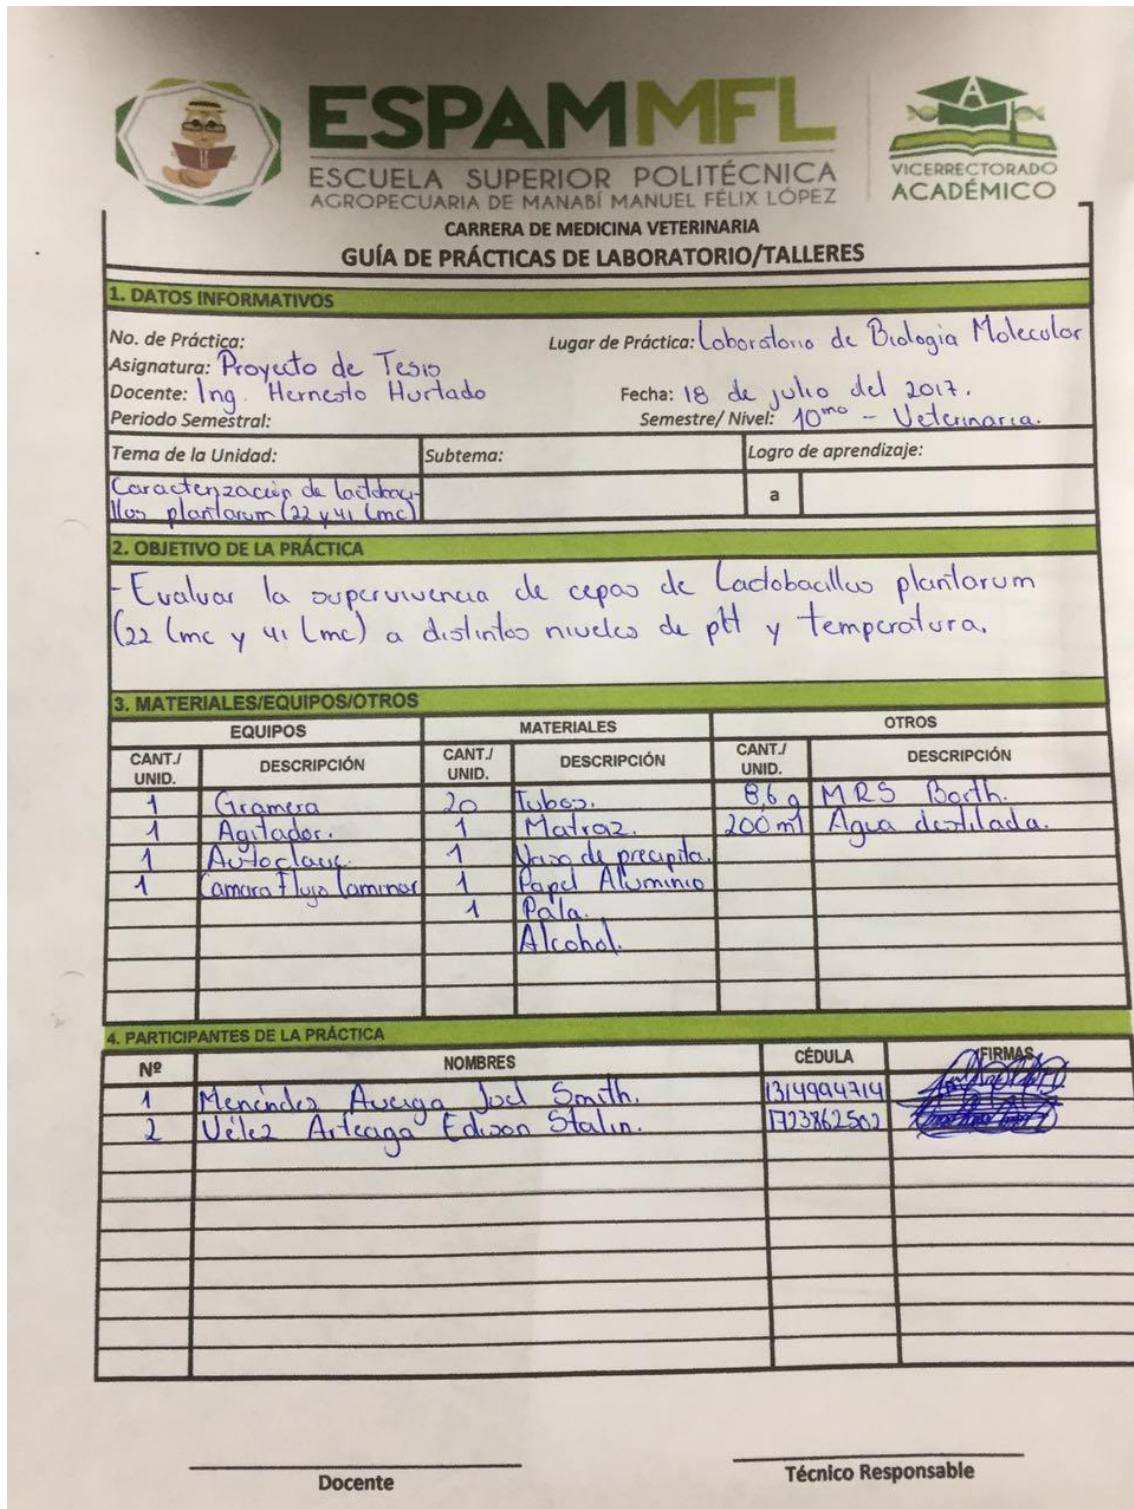 ESPAMMFL
ESCUELA SUPERIOR POLITÉCNICA
AGROPECUARIA DE MANABÍ MANUEL FÉLIX LÓPEZ
VICERRECTORADO
ACADÉMICO
CARRERA DE MEDICINA VETERINARIA
GUÍA DE PRÁCTICAS DE LABORATORIO/TALLERES
1. DATOS INFORMATIVOS
No. de Práctica: Lugar de Práctica: Laboratorio de Biologia Molecular
Asignatura: Proyecto de Tesis
Docente: Ing. Hernesto Hurtado Fecha: 18 de julio del 2017.
Periodo Semestral: Semestre/ Nivel: 10mo - Veterinaria.
Tema de la Unidad: Subtema: Logro de aprendizaje:
Caracterización de lactobaci-
llus plantarum (22 y 41 Lmc) a
2. OBJETIVO DE LA PRÁCTICA
- Evaluar la supervivencia de cepas de Lactobacillus plantarum
(22 Lmc y 41 Lmc) a distintos niveles de pH y temperatura.
3. MATERIALES/EQUIPOS/OTROS
EQUIPOS MATERIALES OTROS
CANT./ UNID. DESCRIPCIÓN CANT./ UNID. DESCRIPCIÓN CANT./ UNID. DESCRIPCIÓN
1 Gramera 20 Tubos. 8,6 g MRS Borth.
1 Agitador. 1 Matraz. 200 ml Agua destilada.
1 Autoclave. 1 Vaso de precipita.
1 Camara Flujo laminar 1 Papel Aluminio
1 Pala.
Alcohol.
4. PARTICIPANTES DE LA PRÁCTICA
Nº NOMBRES CÉDULA FIRMAS
1 Menéndez Aveiga Joel Smith. 1314994714
2 Vélez Arteaga Edison Stalin. 1723862502
Docente Técnico Responsable